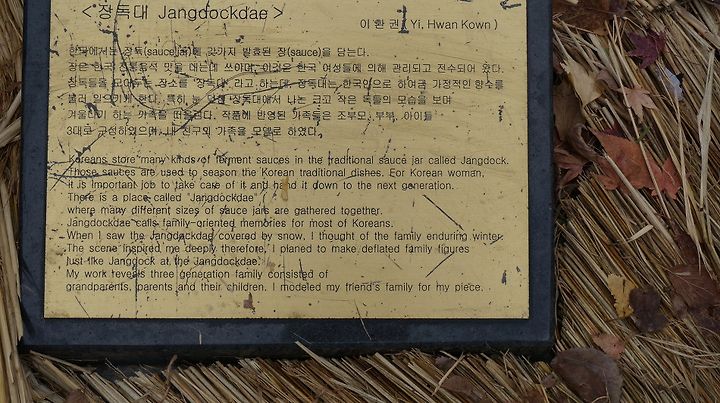 < 장독대 Jangdockdae >
이 환 권 ( Yi, Hwan Kown )
한국에서는 장독(sauce jar)에 갖가지 발효된 장(sauce)을 담는다.
장은 한국 전통음식 맛을 내는데 쓰이며, 이것은 한국 여성들에 의해 관리되고 전수되어 왔다.
장독들을 모아두는 장소를 '장독대' 라고 하는데, 장독대는 한국인으로 하여금 가정적인 향수를
불러 일으키게 한다. 특히 눈 덮힌 장독대에서 나는 크고 작은 독들의 모습을 보며
겨울나기 하는 가족을 떠올렸다. 작품에 반영된 가족들은 조부모, 부부, 아이들
3대로 구성하였으며, 내 친구의 가족을 모델로 하였다.
Koreans store many kinds of ferment sauces in the traditional sauce jar called Jangdock.
Those sauces are used to season the Korean traditional dishes. For Korean woman,
it is important job to take care of it and hand it down to the next generation.
There is a place called "Jangdockdae"
where many different sizes of sauce jars are gathered together.
Jangdockdae calls family-oriented memories for most of Koreans.
When I saw the Jangdockdae covered by snow, I thought of the family enduring winter.
The scene inspired me deeply therefore, I planed to make deflated family figures
just like Jangdock at the Jangdockdae.
My work reveals three generation family consisted of
grandparents, parents and their children. I modeled my friend's family for my piece.